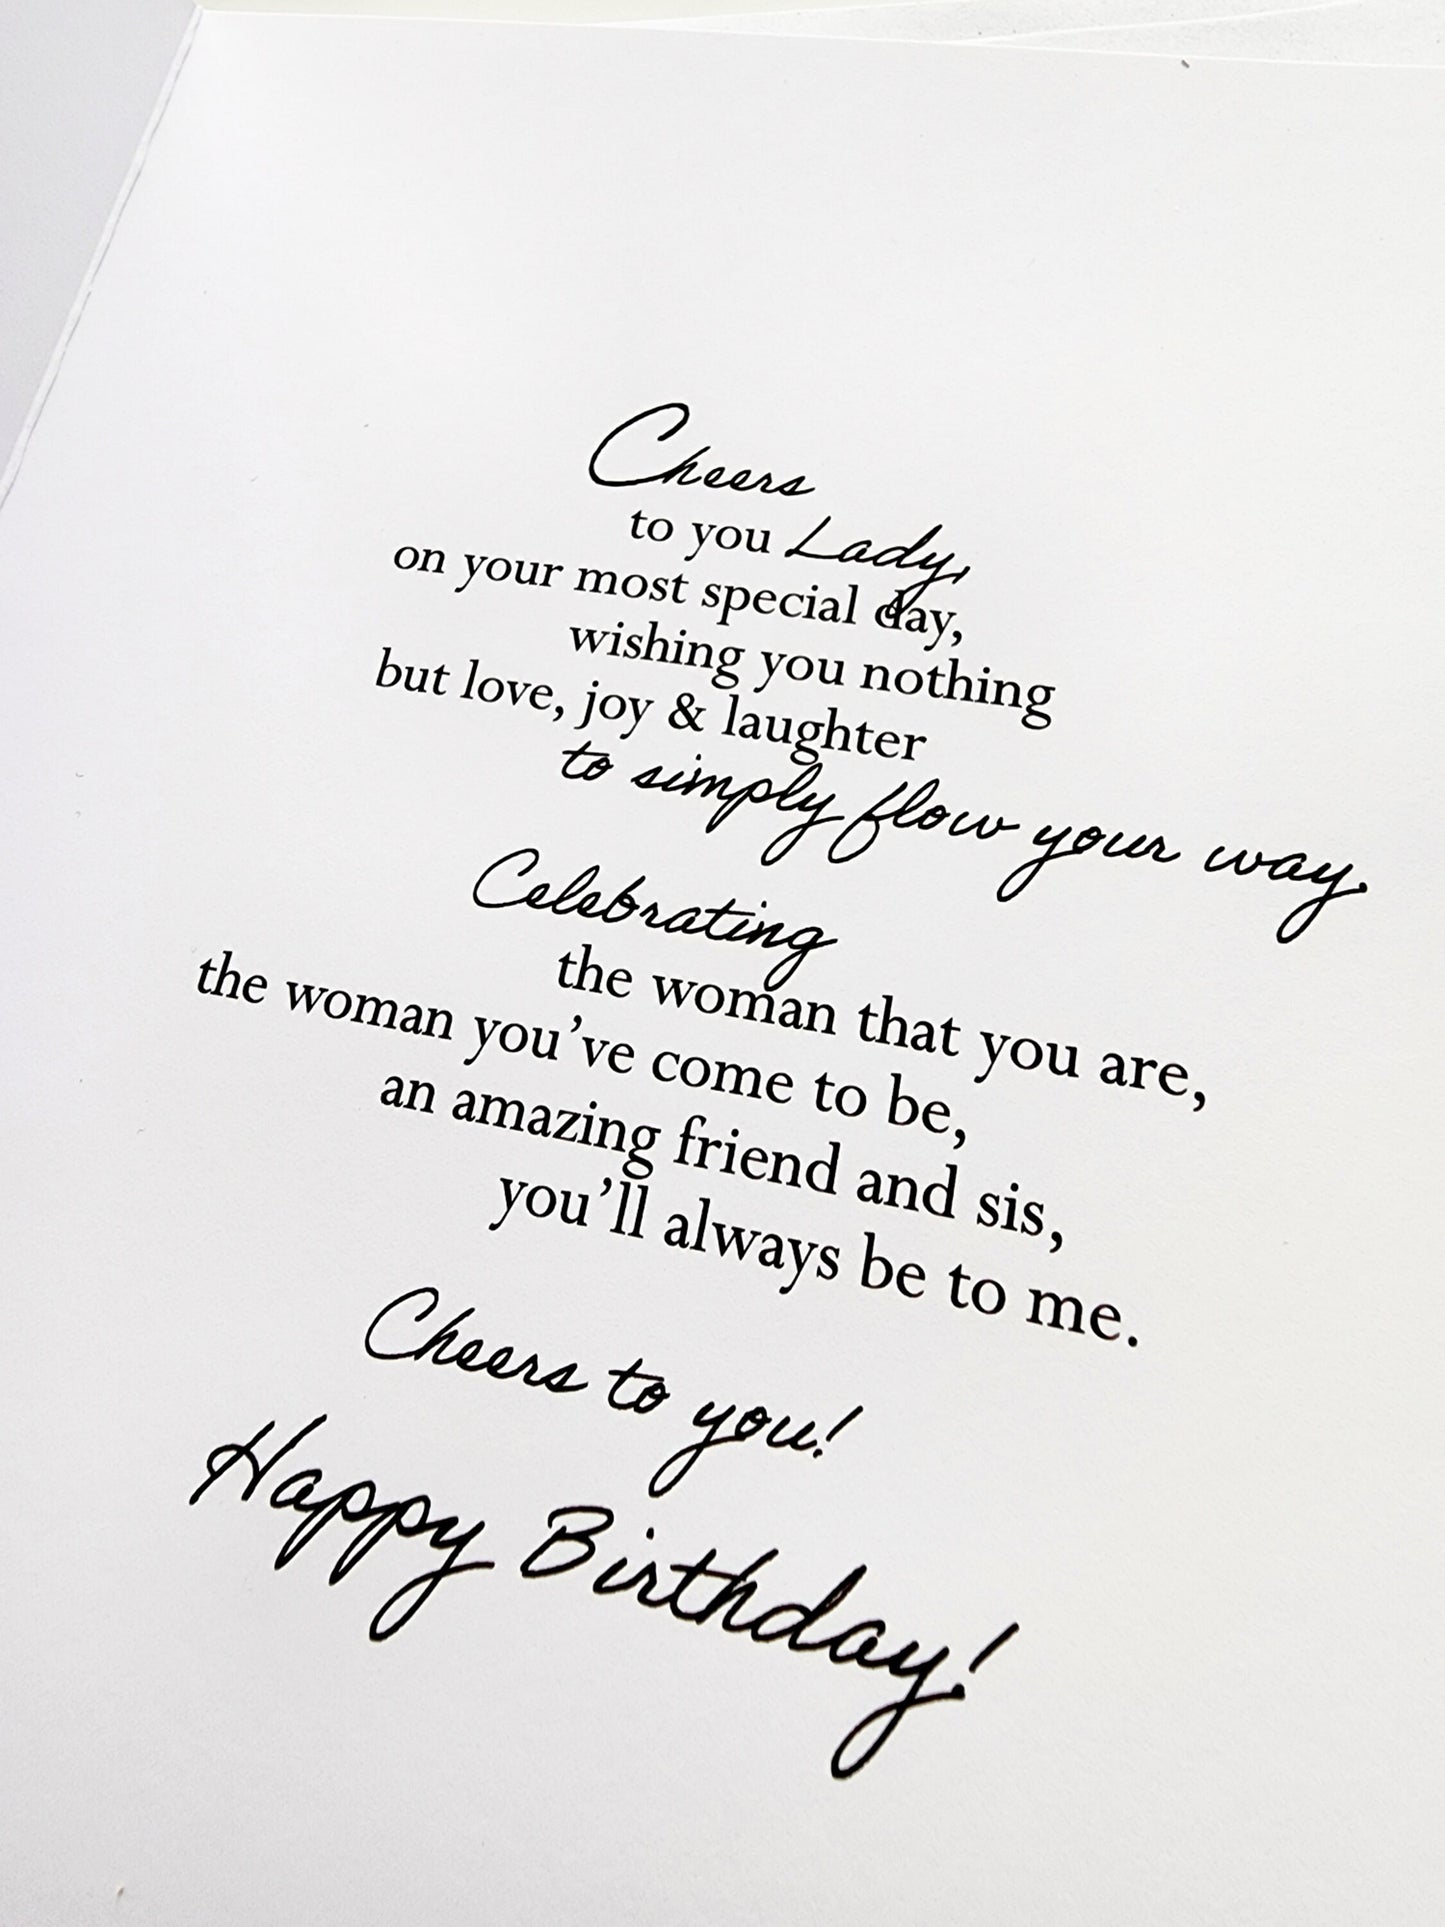 Cheers
to you Lady,
on your most special day,
wishing you nothing
but love, joy & laughter
to simply flow your way.
Celebrating
the woman that you are,
the woman you’ve come to be,
an amazing friend and sis,
you’ll always be to me.
Cheers to you!
Happy Birthday!